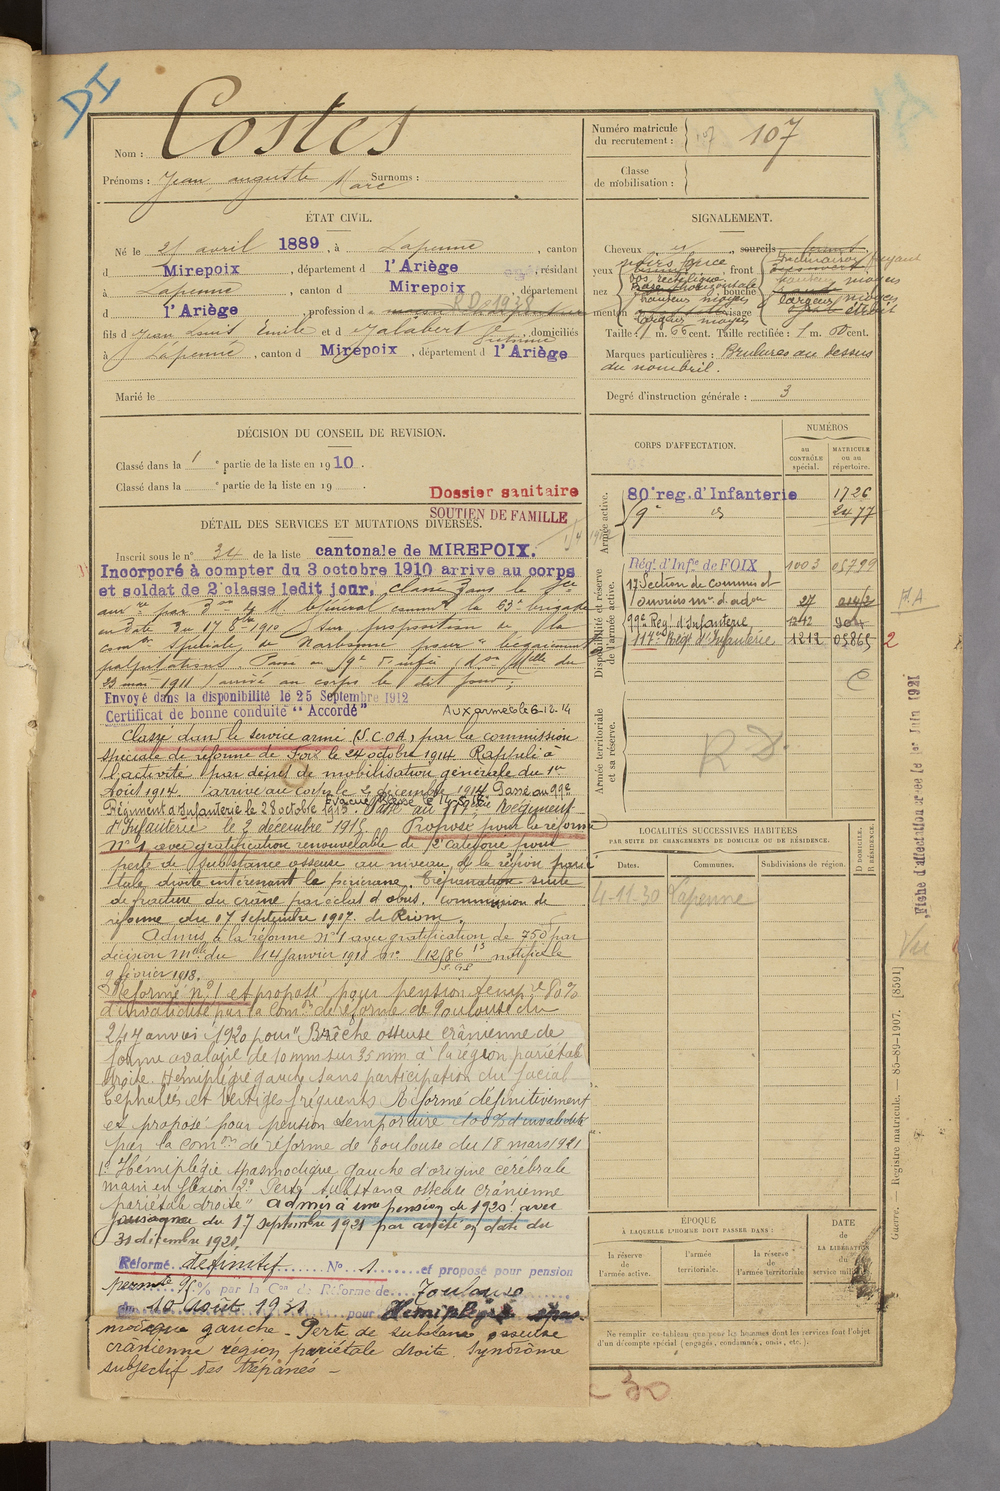 DI
Nom : Costes
Prénoms : Jean, auguste Marc Surnoms :
Numéro matricule du recrutement : 107
Classe de mobilisation :
ÉTAT CIVIL.
Né le 25 avril 1889, à Lapenne, canton
d Mirepoix, département d l'Ariège, résidant
à Lapenne, canton d Mirepoix, département
R D 1938
d l'Ariège, profession d
fils d Jean Louis Émile et d Jalabert, domiciliés
à Lapenne, canton d Mirepoix, département d l'Ariège
Marié le
SIGNALEMENT.
Cheveux noirs, sourcils
yeux, front fuyant
nez dos rectiligne, base horizontale, hauteur moyen, bouche
menton, visage
Taille : 1 m. 66 cent. Taille rectifiée : 1 m. cent.
Marques particulières : Brulures au dessus
du nombril.
Degré d'instruction générale : 3
DÉCISION DU CONSEIL DE REVISION.
Classé dans la 1e partie de la liste en 1910.
Classé dans la e partie de la liste en 19
Dossier sanitaire
SOUTIEN DE FAMILLE
DÉTAIL DES SERVICES ET MUTATIONS DIVERSES.
Inscrit sous le n° 34 de la liste cantonale de MIREPOIX.
Incorporé à compter du 3 octobre 1910 arrive au corps
et soldat de 2e classe ledit jour, classé dans le Sce
auxre par Mr le Général commt la 63e brigade
en date du 17 8bre 1910 sur proposition de la
comon spéciale de Narbonne pour "bégaiement
palpitations. Passé au 9e d'infie, don Mlle du
23 mai 1911 arrivé au corps le dit jour ;
Envoyé dans la disponibilité le 25 Septembre 1912
Certificat de bonne conduite "Accordé"
Aux armées le 6-12-14
Classé dans le service armé (S.C.O.A.) par la commission
spéciale de réforme de Foix le 24 octobre 1914. Rappelé à
l'activité par décret de mobilisation générale du 1er
Août 1914. arrivé au corps le 2 décembre 1914 Passé au 99e
Régiment d'Infanterie le 28 octobre 1915
Passé au 117e Régiment
d'Infanterie le 2 décembre 1915. Proposé pour la réforme
N° 1 avec gratification renouvelable de 5e catégorie pour
perte de substance osseuse au niveau de la région parié
tale droite intéressant le péricrane. Trépanation suite
de fracture du crâne par éclat d'obus. Commission de
réforme du 07 septembre 1917. de Riom.
Admis à la réforme N° 1 avec gratification de 750f par
décision Mlle du 14 janvier 1918 No notifié le
9 février 1918.
Réformé n° 1 et proposé pour pension tempre 80%
d'invalidité par la comon de réforme de Toulouse du
24 Janvier 1920 pour "Brèche osseuse crânienne de
forme ovalaire de 10mm sur 35mm à la région pariétale
droite. Hémiplégie gauche sans participation du facial
Céphalées et Vertiges fréquents Réformé définitivement
et proposé pour pension temporaire 100% d'invalidité
par la comon de réforme de Toulouse du 18 mars 1921
1° Hémiplégie spasmodique gauche d'origine cérébrale
main en flexion 2° Perte substance osseuse crânienne
pariétale droite" admis à une pension de 1920f avec
jouissance du 17 septembre 1921 par arrêté en date du
31 décembre 1921.
Réformé définitif N° 1 et proposé pour pension
permte 95% par la Con de Réforme de Toulouse
du 10 Août 1931 pour Hémiplégie spas-
modique gauche - Perte de substance osseuse
crânienne région pariétale droite. Syndrôme
subjectif des trépanés -
CORPS D'AFFECTATION.
NUMÉROS
au CONTRÔLE spécial.
MATRICULE ou au répertoire.
Armée active.
80e reg. d'Infanterie 1726
9e ds 2477
Disponibilité et réserve de l'armée active.
Régt d'Infie de FOIX 1003 05799
17 Section de Commis et
ouvriers mres d'adon 27
99e Reg. d'Infanterie 1242
117me Reg. d'Infanterie 1212 05865
2
C
Armée territoriale et sa réserve.
R D.
LOCALITÉS SUCCESSIVES HABITÉES
PAR SUITE DE CHANGEMENTS DE DOMICILE OU DE RÉSIDENCE.
Dates. Communes. Subdivisions de région. D. DOMICILE. R. RÉSIDENCE.
4-11-30 Lapenne
ÉPOQUE
À LAQUELLE L'HOMME DOIT PASSER DANS :
la réserve de l'armée active.
l'armée territoriale.
la réserve de l'armée territoriale
DATE de LA LIBÉRATION du service militaire
Ne remplir ce tableau que pour les hommes dont les services font l'objet
d'un décompte spécial (engagés, condamnés, omis, etc.).
Fiche d'affectation créée le 1er Juin 1921
Guerre. Registre matricule. — 85-89-1907. [8591]
30